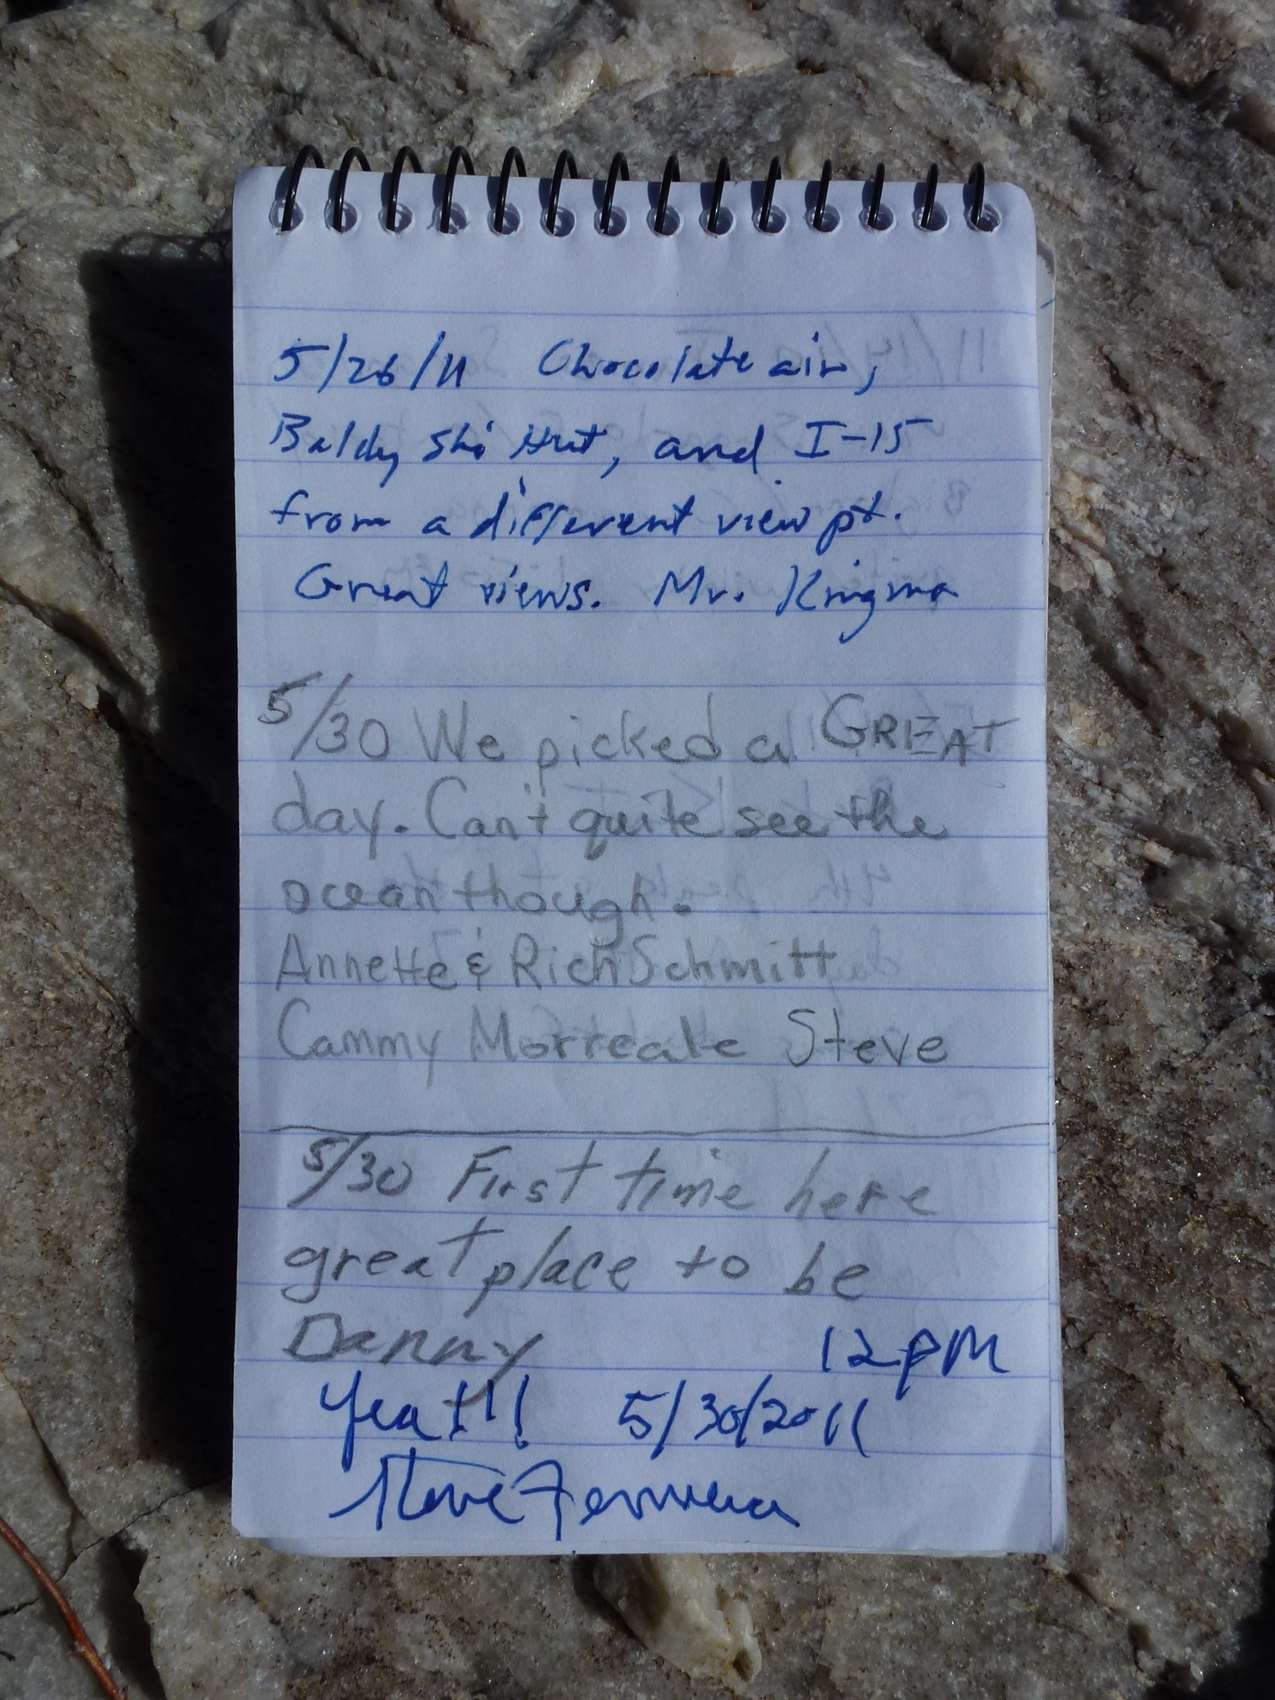 5/26/11 Chocolate air,
Baldy Ski Hut, and I-15
from a different view pt.
Great views. Mr. Kingma
5/30 We picked a GREAT
day. Can't quite see the
ocean though.
Annette & Rich Schmitt
Cammy Morreale Steve
5/30 First time here
great place to be
Danny 12pM
Yea!!! 5/30/2011
Steve